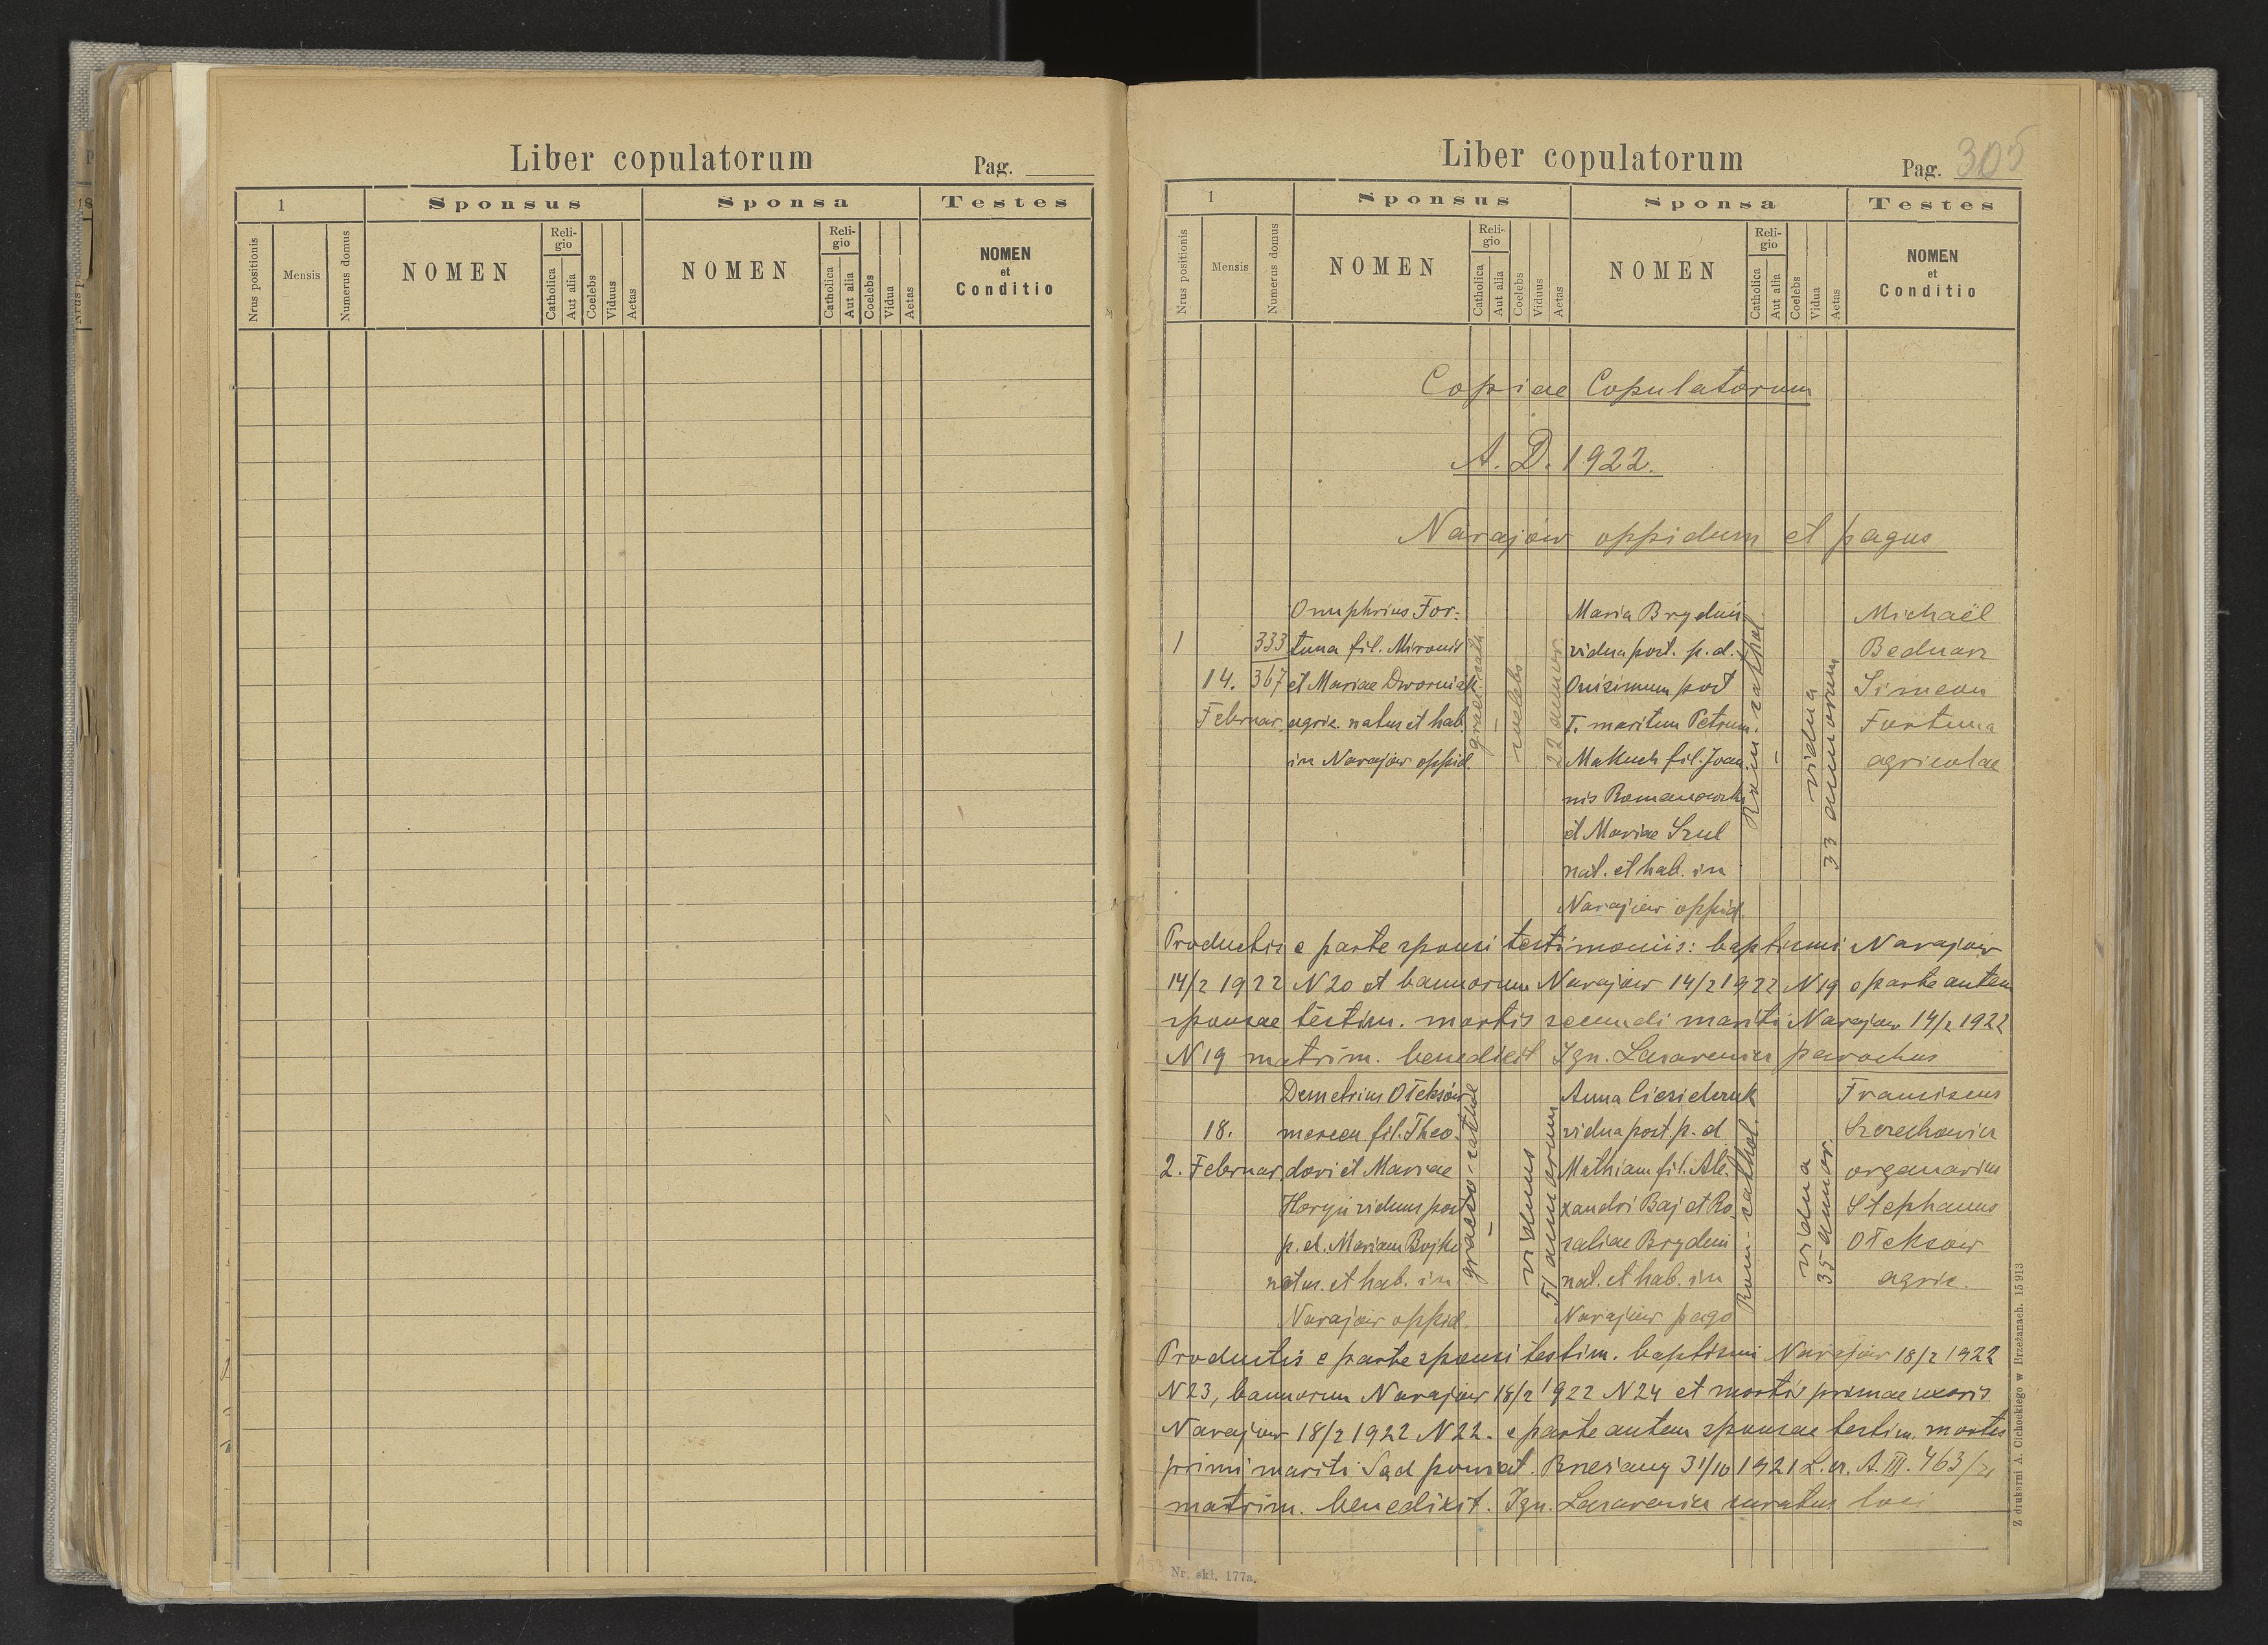 Liber copulatorum
Pag.
1
Sponsus
Sponsa
Testes
Nrus positionis
Mensis
Numerus domus
NOMEN
Religio
Catholica
Aut alia
Coelebs
Viduus
Aetas
NOMEN
Religio
Catholica
Aut alia
Coelebs
Vidua
Aetas
NOMEN
et
Conditio
Liber copulatorum
Pag. 305
1
Sponsus
Sponsa
Testes
Nrus positionis
Mensis
Numerus domus
NOMEN
Religio
Catholica
Aut alia
Coelebs
Viduus
Aetas
NOMEN
Religio
Catholica
Aut alia
Coelebs
Vidua
Aetas
NOMEN
et
Conditio
Copiae Copulatorum
A. D. 1922.
Narajów oppidum et pagus
1
14.
Februar.
333
367
Onuphrius For-
tuna fil. Mironis
et Mariae Dworniak
agric. natus et hab.
in Narajów oppid.
graec. cath.
coelebs
22 annor.
Maria Bryduń
vidua post. p. d.
Onisimum post
T. maritum Petrum
Makuch fil. Joan-
nis Romanowski
et Mariae Szul
nat. et hab. in
Narajów oppid.
Rom. cathol.
vidua
33 annorum
Michaël
Bednarz
Simeon
Fortuna
agricolae
Productis e parte sponsi testimoniis: baptismi Narajów
14/2 1922 N 20 et bannorum Narajów 14/2 1922 N 19 e parte autem
sponsae testim. mortis secundi mariti Narajów 14/2 1922
N 19 matrim. benedixit Ign. Lazarewicz parochus
2.
18.
Februar.
Demetrius Ołeksów
mercen. fil. Theo-
dori et Mariae
Horyń viduus post
p. d. Mariam Bojko
natus. et hab. in
Narajów oppid.
graeco-cathol
viduus
51 annorum
Anna Ciesielczuk
vidua post. p. d.
Mathiam fil. Ale-
xandri Baj et Ro
saliae Brydun
nat. et hab. in
Narajów pago
Rom-cathol.
vidua
35 annor.
Franciscus
Szrechowicz
organarius
Stephanus
Ołeksow
agric.
Productis e parte sponsi testim. baptismi Narajów 18/2 1922
N 23, bannorum Narajów 18/2 1922 N 24 et mortis primae uxoris
Narajów 18/2 1922 N 22. e parte autem sponsae testim. mortis
primi mariti Sąd powiat. Brzeżany 31/10 1921 L. cz. A. III. 463/21
matrim. benedixit. Ign. Lazarewicz curatus loci
Z drukarni A. Cichockiego w Brzeżanach. 15 913
Nr. skł. 177a.